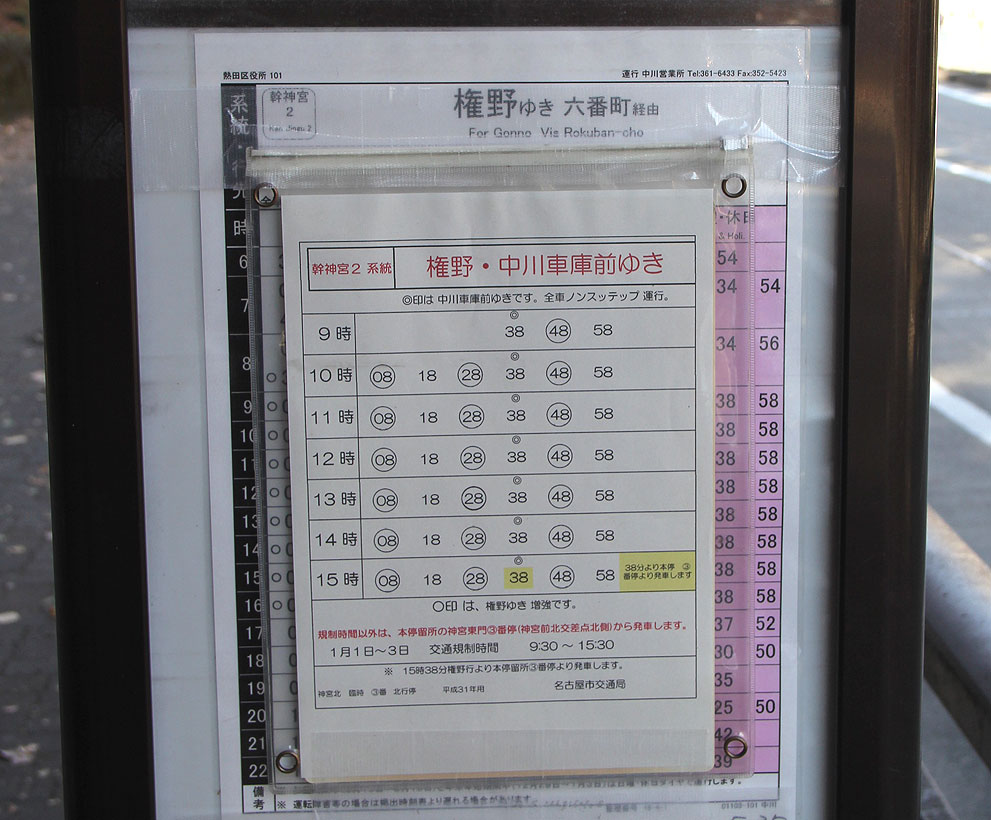 熱田区役所 101
運行 中川営業所 Tel:361-6433 Fax:352-5423
系統・行
幹神宮
2
権野ゆき 六番町経由
For Gonno Via Rokuban-cho
時
・休日
& Holi.
6 54
7 34 54
8 34 56
9 38 58
10 38 58
11 38 58
12 38 58
13 38 58
14 38 58
15 38 58
16 38 58
17 37 52
18 30 50
19 35
20 25 50
21 42
22 39
幹神宮2 系統 権野・中川車庫前ゆき
◎印は 中川車庫前ゆきです。全車ノンスッテップ 運行。
◎
9時 38 ㊽ 58
◎
10時 (08) 18 ㉘ 38 ㊽ 58
◎
11時 (08) 18 ㉘ 38 ㊽ 58
◎
12時 (08) 18 ㉘ 38 ㊽ 58
◎
13時 (08) 18 ㉘ 38 ㊽ 58
◎
14時 (08) 18 ㉘ 38 ㊽ 58
◎
15時 (08) 18 ㉘ 38 ㊽ 58 38分より本停 ③
番停より発車します
〇印 は、権野ゆき 増強です。
規制時間以外は、本停留所の神宮東門③番停(神宮前北交差点北側)から発車します。
1月1日～3日 交通規制時間 9:30 ～ 15:30
※ 15時38分権野行より本停留所③番停より発車します。
神宮北 臨時 ③番 北行停 平成31年用 名古屋市交通局
備考
※ 運転障害等の場合は掲出時刻表より遅れる場合があります。
01103-101 中川